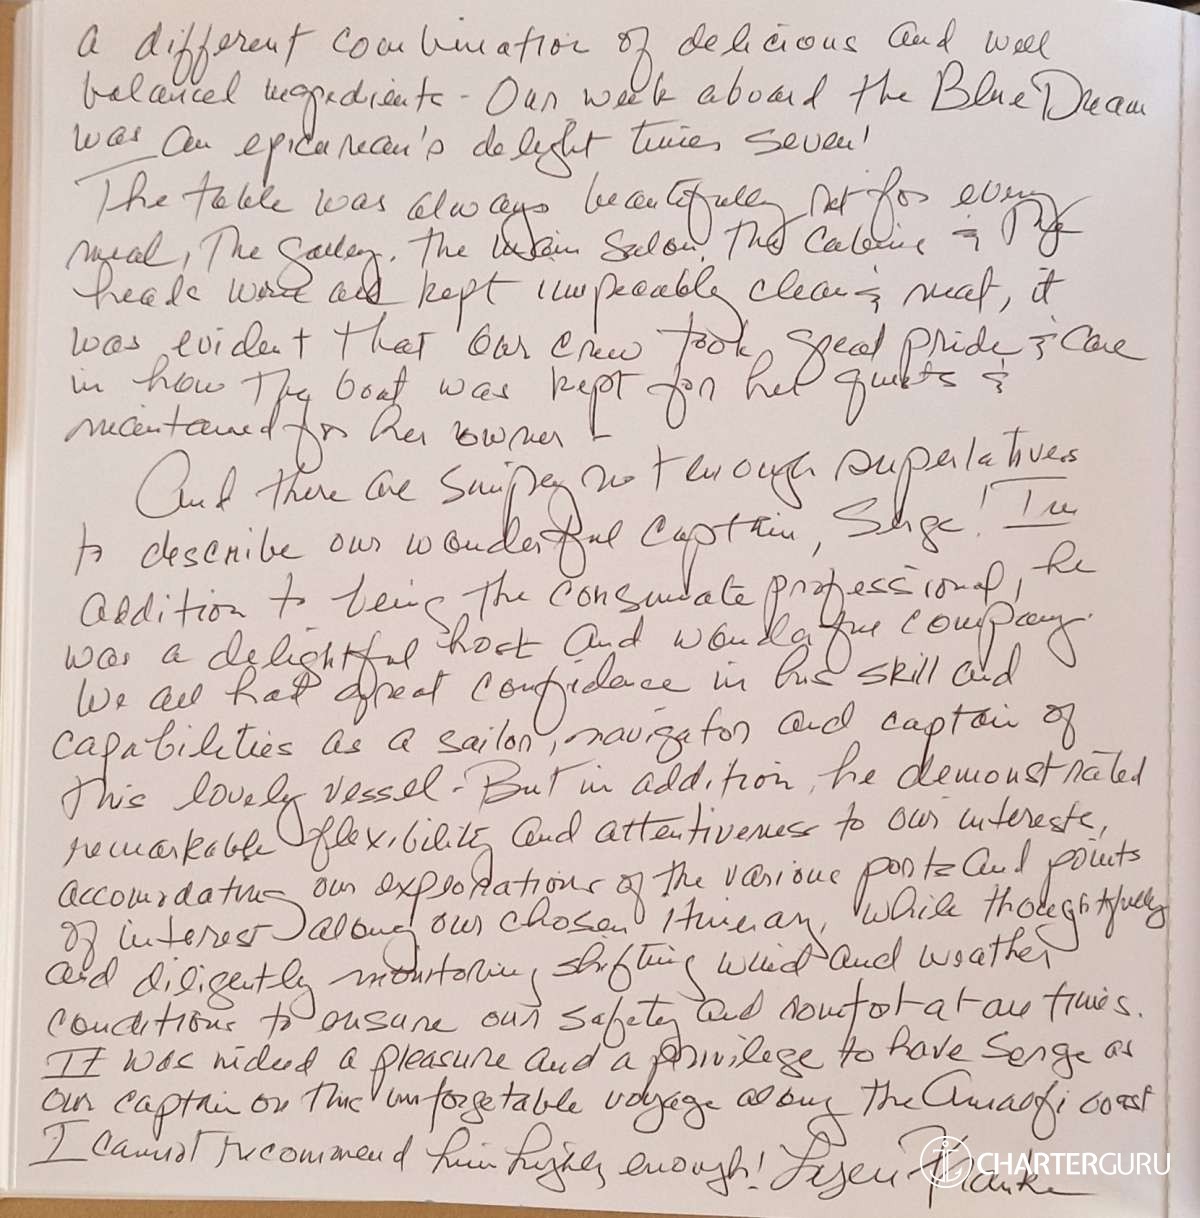 a different combination of delicious and well
balanced ingredients - Our week aboard the Blue Dream
was an epicurean's delight times seven!
The table was always beautifully set for every
meal, The Galley, the main Salon, the cabins & The
heads were all kept impeccably clean & neat, it
was evident that our crew took great pride & care
in how the boat was kept for her guests &
maintained for her owner -
And there are simply not enough superlatives
to describe our wonderful Captain, Serge! In
addition to being the consumate professional, he
was a delightful host and wonderful company.
We all had great confidence in his skill and
capabilities as a sailor, navigator and captain of
this lovely vessel - But in addition, he demonstrated
remarkable flexibility and attentiveness to our interests,
accomodating our explorations of the various ports and points
of interest along our chosen itinerary, while thoughtfully
and diligently monitoring shifting wind and weather
conditions to ensure our safety and comfort at all times.
It was indeed a pleasure and a privilege to have Serge as
our captain on this unforgetable voyage along the Amalfi coast
I cannot recommend him highly enough!
CHARTERGURU